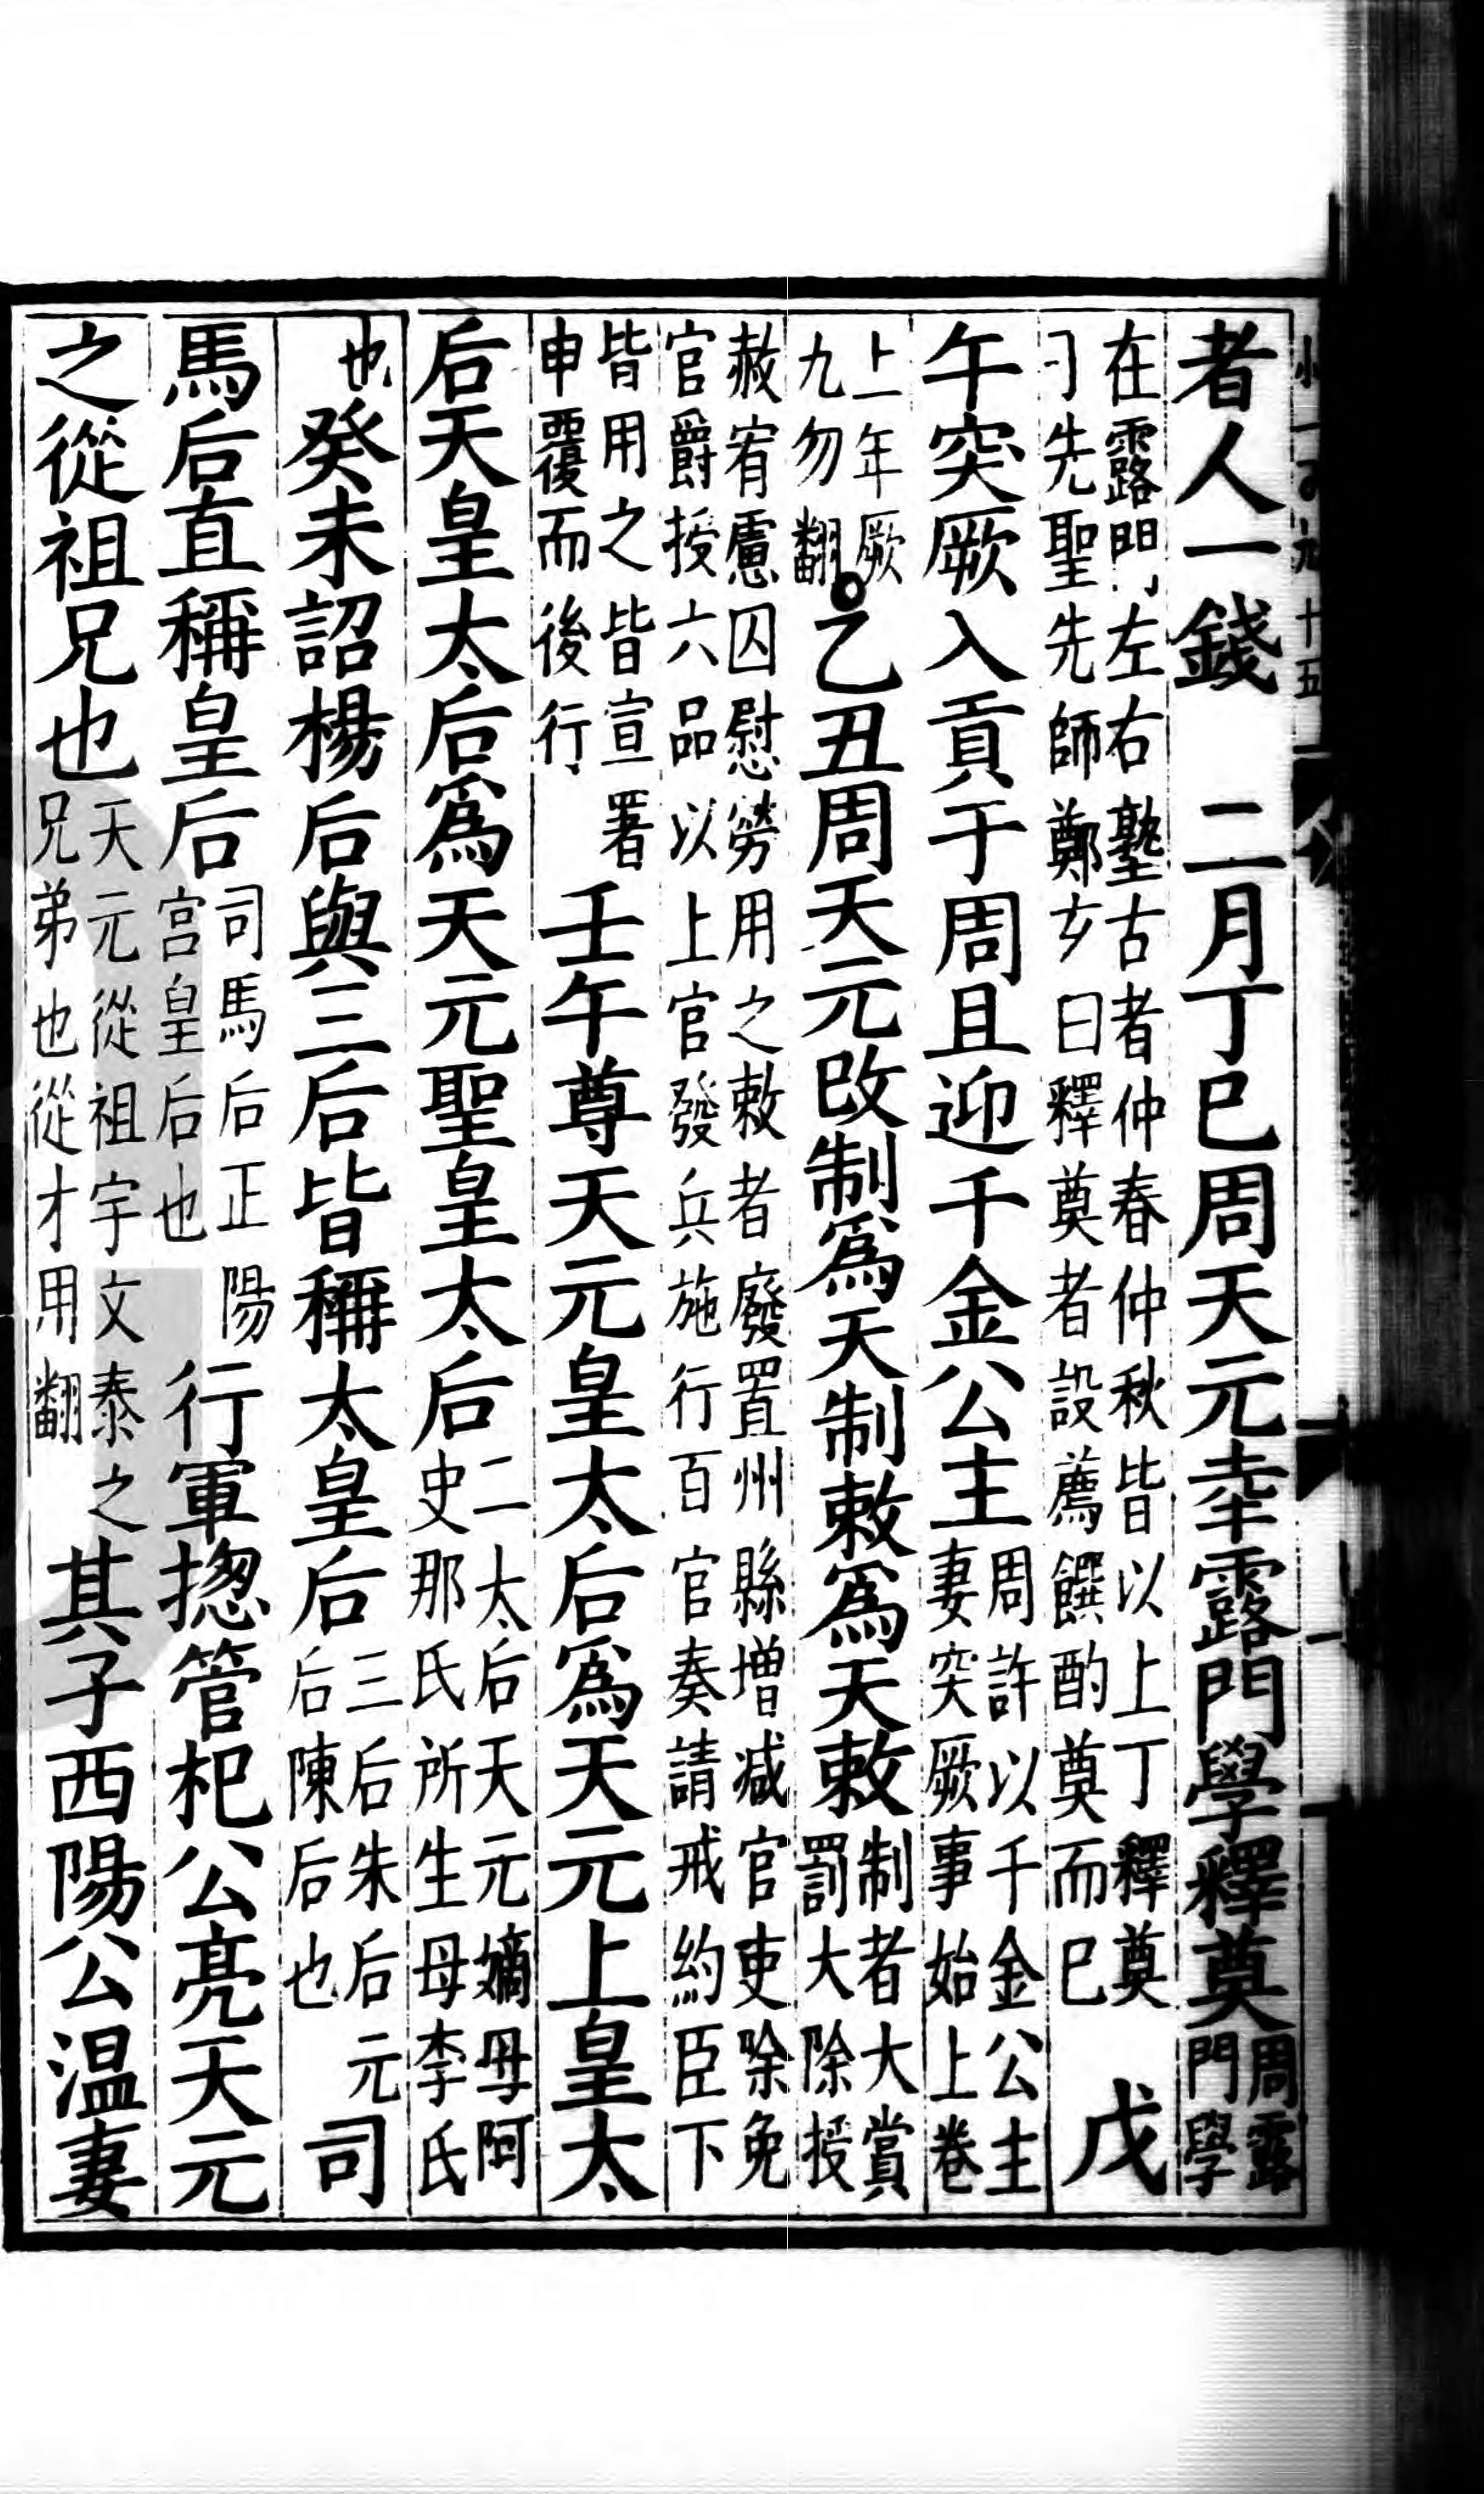 者人一錢　二月丁巳周天元幸露門學釋奠周露門學
在露門左右塾古者仲春仲秋皆以上丁釋奠先聖先師鄭玄曰釋奠者設薦饌酌奠而已　戊
午突厥入貢于周且迎千金公主周許以千金公主妻突厥事始上卷
上年厥九勿翻○乙丑周天元改制爲天制敕爲天敕制者大賞罰大除授
赦宥慮囚慰勞用之敕者廢置州縣增減官吏除免官爵授六品以上官發兵施行百官奏請戒約臣下
皆用之皆宣署申覆而後行　壬午尊天元皇太后爲天元上皇太
后天皇太后爲天元聖皇太后二太后天元嫡母阿史那氏所生母李氏
也癸未詔楊后與三后皆稱太皇后三后朱后元后陳后也司
馬后直稱皇后司馬后正陽宮皇后也　行軍揔管杞公亮天元
之從祖兄也天元從祖宇文泰之兄弟也從才用翻其子西陽公温妻